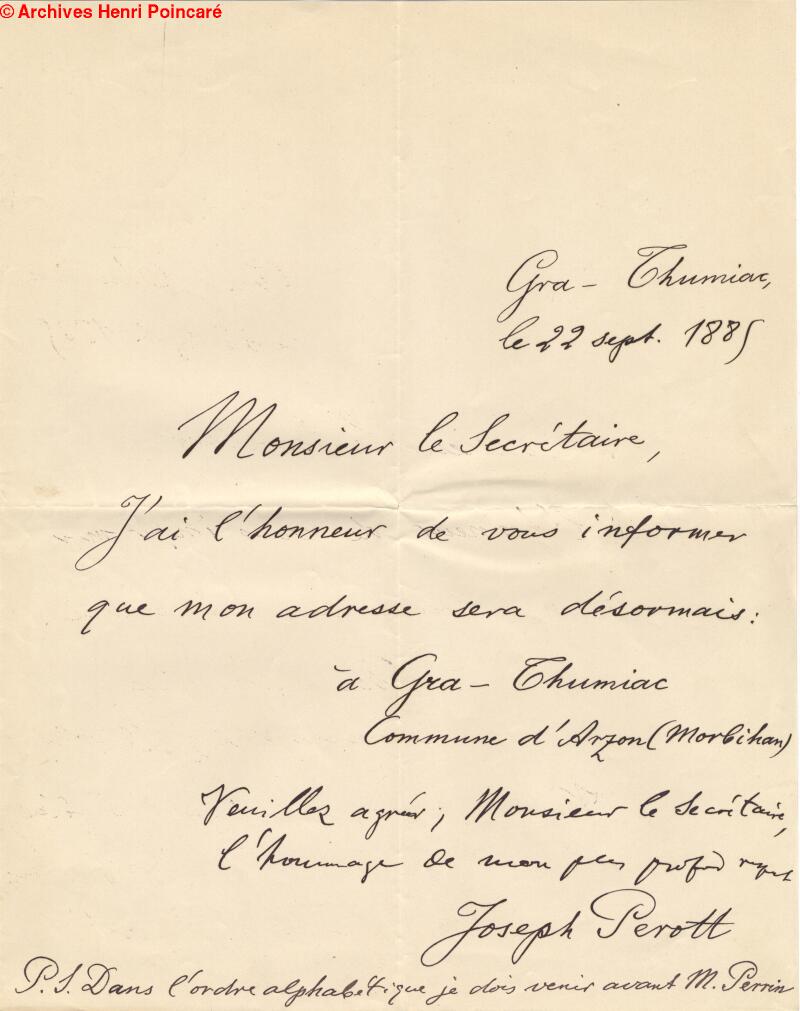 © Archives Henri Poincaré
Gra - Thumiac,
le 22 sept. 1885
Monsieur le Secrétaire,
J'ai l'honneur de vous informer
que mon adresse sera désormais :
à Gra - Thumiac
Commune d'Arzon (Morbihan)
Veuillez agréer, Monsieur le Secrétaire,
l'hommage de mon plus profond respect
Joseph Perott
P.S. Dans l'ordre alphabétique je dois venir avant M. Perrin